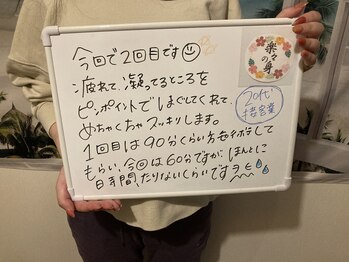 今回で2回目です
疲れて、凝ってるところを
ピンポイントでほぐしてくれて、
めちゃくちゃスッキリします。
1回目は90分くらいもみほぐして
もらい、今回は60分ですが、ほんとに
時間たりないくらいです
楽々の舞
20代
接客業